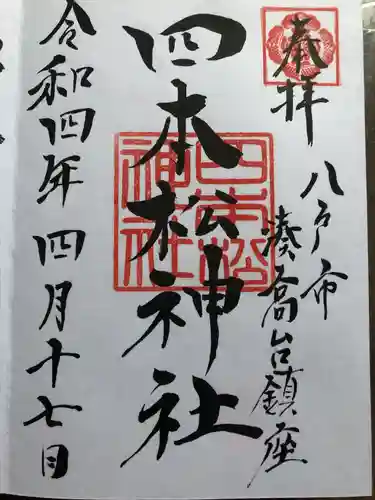 奉拝
八戸市
湊高台鎮座
四本松神社
四本松神社
令和四年四月十七日